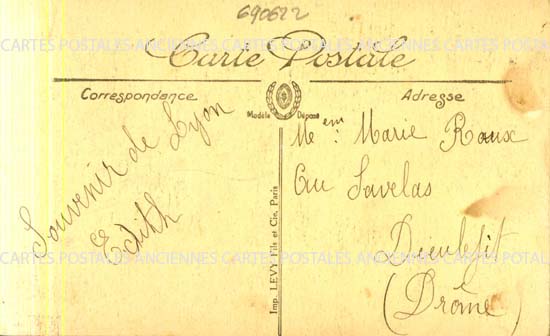 690622
CARTES POSTALES ANCIENNES CARTES POSTALES ANCIENNES CARTES POSTALES
Carte Postale
Correspondance
Modèle Déposé
Adresse
Souvenir de Lyon
Edith
Imp. LEVY Fils et Cie, Paris
Mem: Marie Roux
Au Savelas
Dieulefit
CARTES POSTALES ANCIENNES CARTES POSTALES ANCIENNES CARTES POTALES
(Drôme)